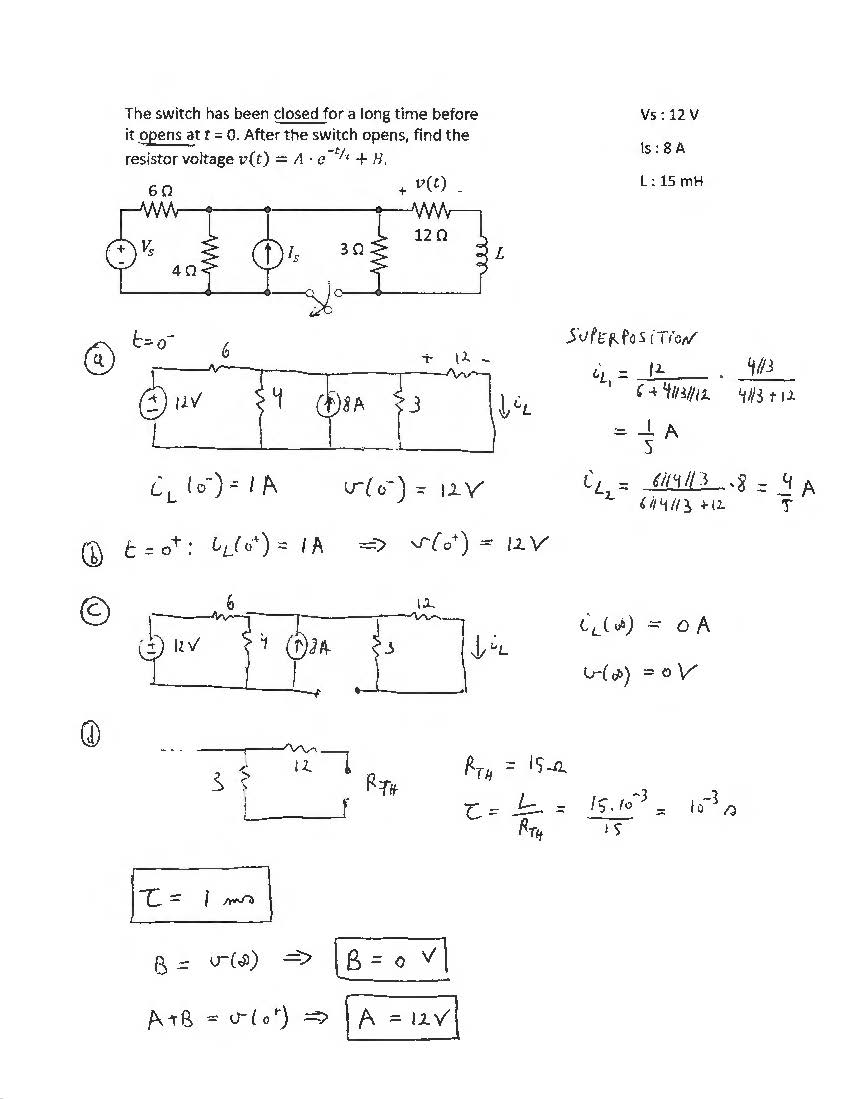 The switch has been closed for a long time before
it opens at t = 0. After the switch opens, find the
resistor voltage v(t) = A · e^(-t/τ) + B.
Vs : 12 V
Is : 8 A
L : 15 mH
6 Ω
+ v(t) -
12 Ω
+ Vs -
4 Ω
Is
3 Ω
L
(a) t=0⁻
6
+ 12 -
± 12V
4
8A
3
↓ iL
SUPERPOSITION
iL₁ = 12 / (6 + 4//3//12) · 4//3 / (4//3 + 12)
= 1/5 A
iL (0⁻) = 1 A v(0⁻) = 12 V
iL₂ = 6//4//3 / (6//4//3 + 12) · 8 = 4/5 A
(b) t = 0⁺ : iL(0⁺) = 1 A ⇒ v(0⁺) = 12 V
(c)
6
12
± 12V
4
8A
3
↓ iL
iL(∞) = 0 A
v(∞) = 0 V
(d)
12
3
RTH
RTH = 15 Ω
τ = L / RTH = 15.10⁻³ / 15 = 10⁻³ s
τ = 1 ms
B = v(∞) ⇒ B = 0 V
A+B = v(0⁺) ⇒ A = 12 V